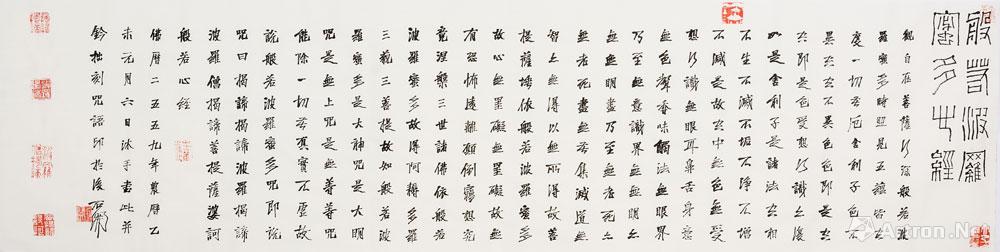 般若波羅
蜜多心經
觀自在菩薩行深般若波
羅蜜多時照見五蘊皆空
度一切苦厄舍利子色不
異空空不異色色即是空
空即是色受想行識亦復
如是舍利子是諸法空相
不生不滅不垢不淨不增
不減是故空中無色無受
想行識無眼耳鼻舌身意
無色聲香味觸法無眼界
乃至無意識界無無明亦
無無明盡乃至無老死亦
無老死盡無苦集滅道無
智亦無得以無所得故菩
提薩埵依般若波羅蜜多
故心無罣礙無罣礙故無
有恐怖遠離顛倒夢想究
竟涅槃三世諸佛依般若
波羅蜜多故得阿耨多羅
三藐三菩提故知般若波
羅蜜多是大神咒是大明
咒是無上咒是無等等咒
能除一切苦真實不虛故
說般若波羅蜜多咒即說
咒曰揭諦揭諦波羅揭諦
波羅僧揭諦菩提薩婆訶
般若心經
佛曆二五五九年農曆乙
未元月六日沐手書此并
鈐拙刻咒語印於後
Artron.Net